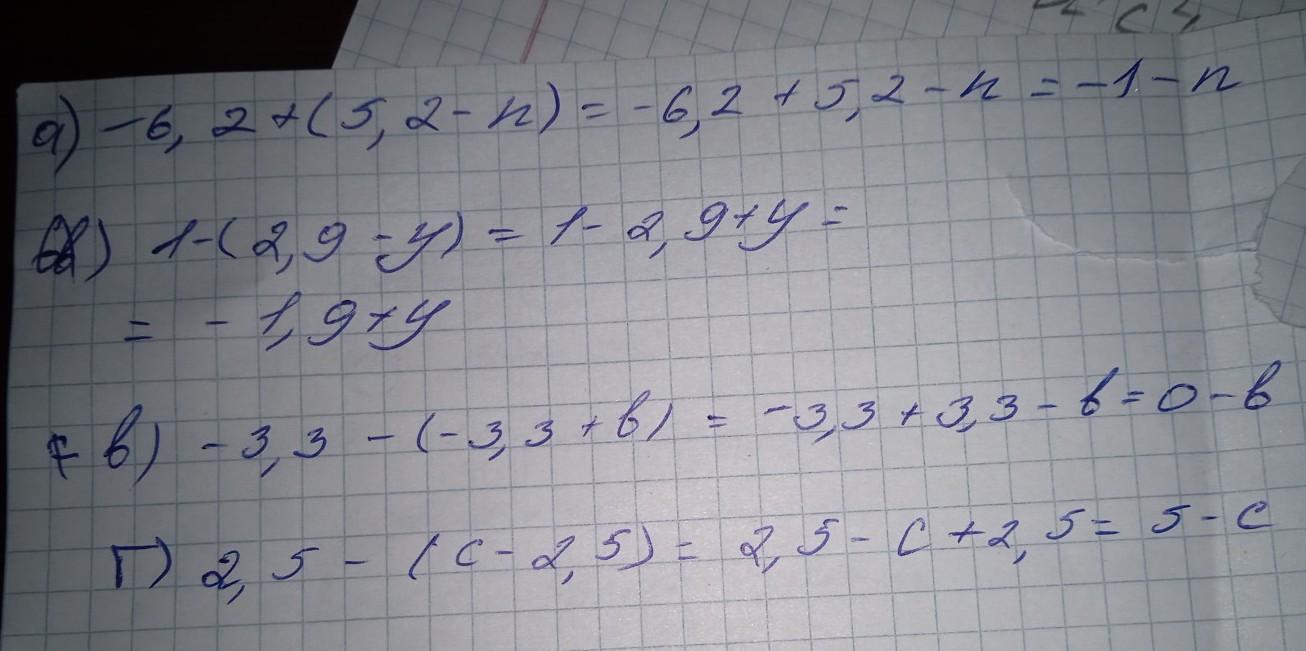 а) -6,2+(5,2-n)=-6,2+5,2-n=-1-n
) 1-(2,9-y)=1-2,9+y=
=-1,9+y
в) -3,3-(-3,3+b)=-3,3+3,3-b=0-b
г) 2,5-(c-2,5)=2,5-c+2,5=5-c